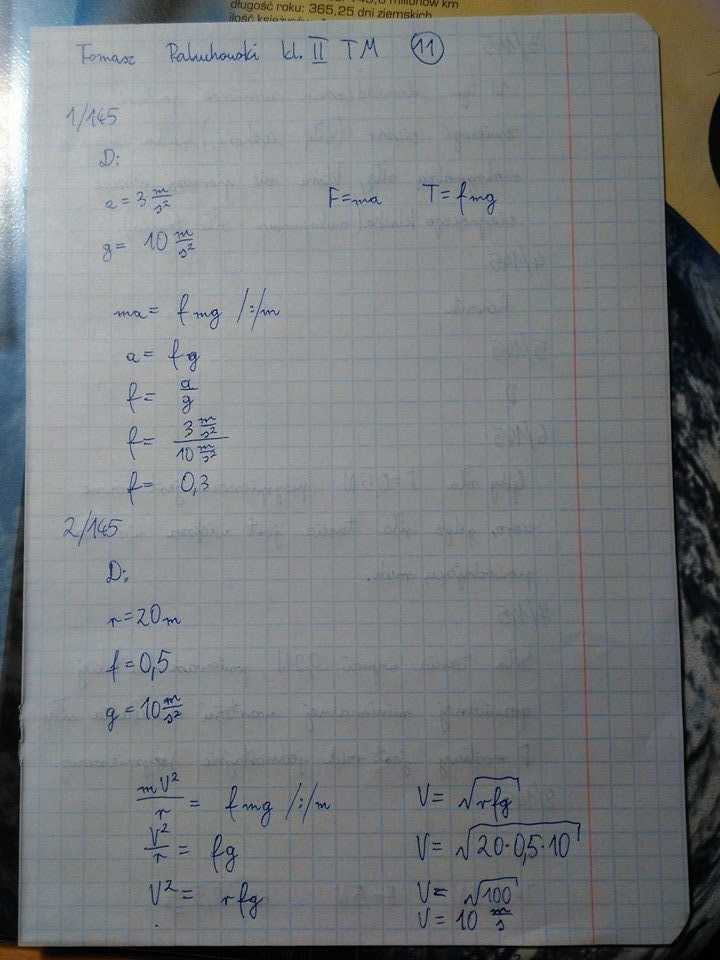 długość roku: 365,25 dni ziemskich
Tomasz Paluchowski kl. II TM 11
1/145
D:
a = 3 m/s²
F=ma T=fmg
g= 10 m/s²
ma = fmg /:/m
a = fg
f = a/g
f = 3 m/s² / 10 m/s²
f = 0,3
2/145
D:
r=20m
f=0,5
g=10 m/s²
mV²/r = fmg /:/m
V²/r = fg
V² = rfg
V= √rfg
V= √20·0,5·10
V= √100
V= 10 m/s